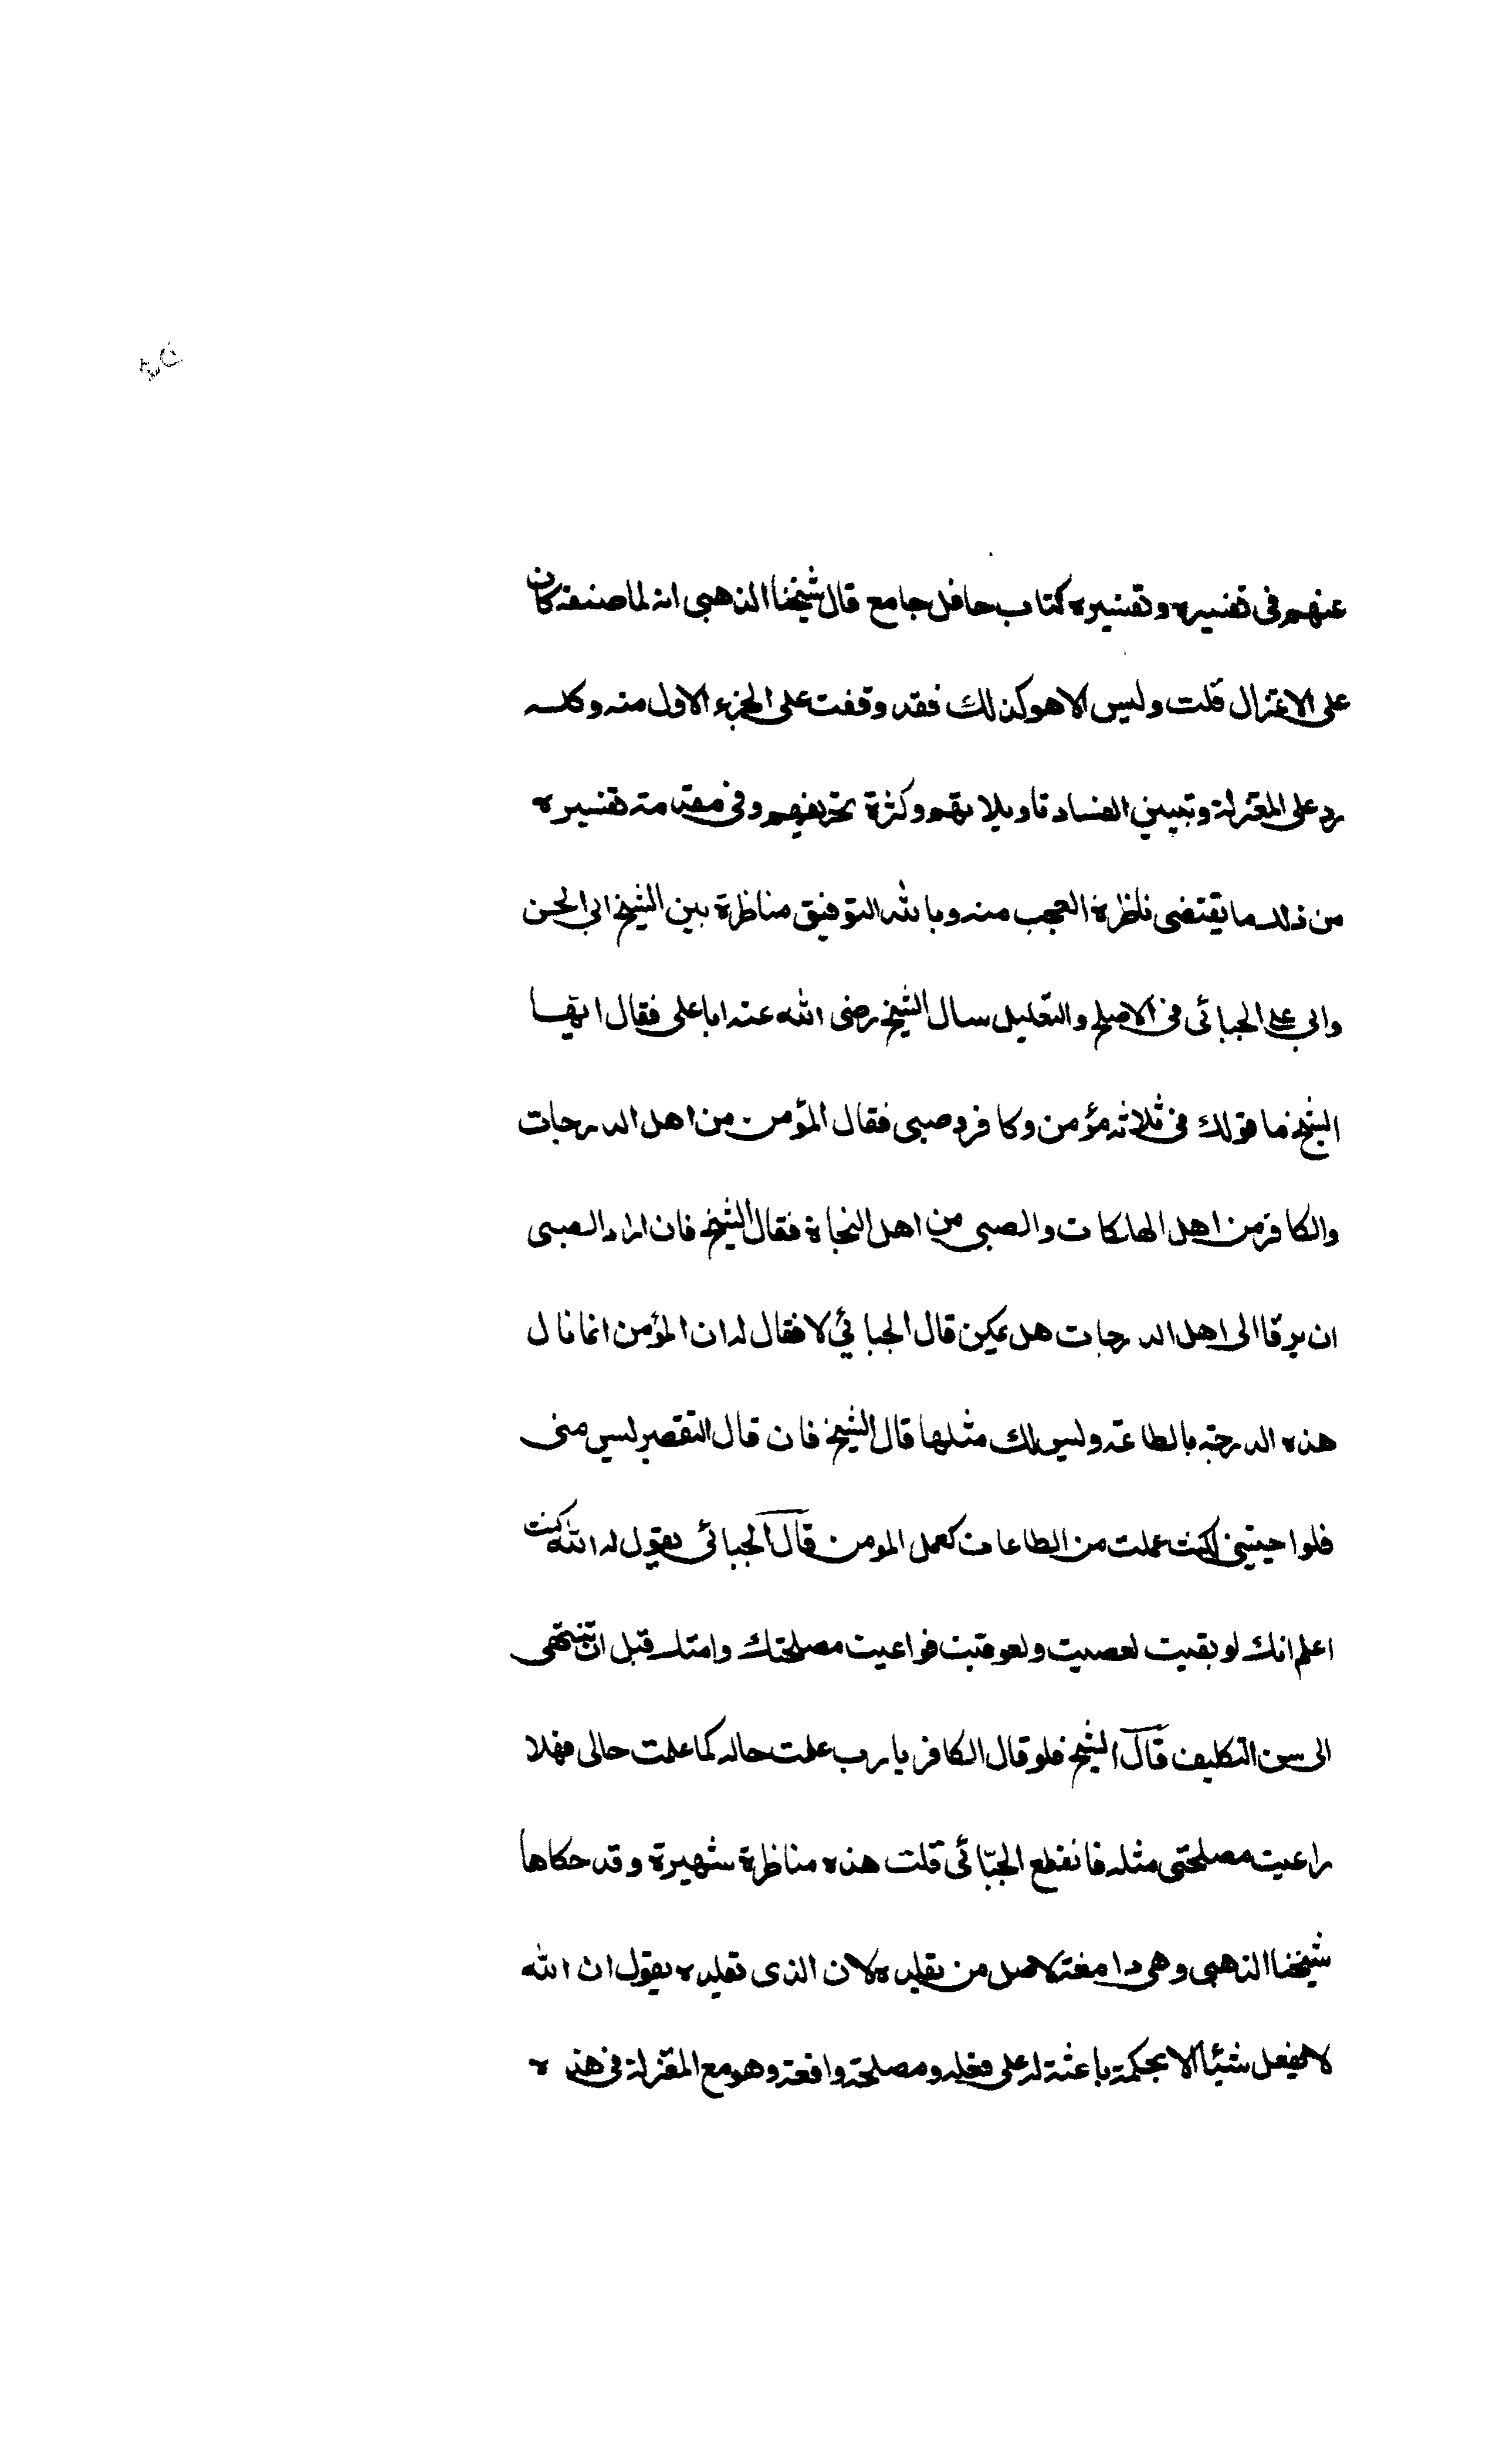 عنهم فى تفسيره وتفسيره كتاب حافل جامع قال شيخنا الذهبى انه لما صنفه كان
على الاعتزال قلت وليس الا هو كذلك فقد وقفت على الجزء الاول منه وكله
رد على المعتزلة وتبيين الفساد تاويلاتهم وكثرة تحريفهم وفى مقدمة تفسيره
من ذلك ما يقتضى ناظره العجب منه وبالله التوفيق مناظرة بين الشيخ ابى الحسن
وابى على الجبائى فى الاصلح والتعليل سال الشيخ رضى الله عنه ابا على فقال ايها
الشيخ ما قولك فى ثلاثه مؤمن وكافر وصبى فقال المؤمن من اهل الدرجات
والكافر من اهل الهلكات والصبى من اهل النجاة فقال الشيخ فان اراد الصبى
ان يرقا الى اهل الدرجات هل يمكن قال الجبائي لا فقال له ان المؤمن انما نال
هذه الدرجة بالطاعة وليس لك مثلها قال الشيخ فان قال التقصير ليس منى
فلو احييتنى لكنت عملت من الطاعات كعمل المومن قال الجبائى يقول له الله كنت
اعلم انك لو بقيت لعصيت ولعوقبت فراعيت مصلحتك وامتك قبل ان تنتهى
الى سن التكليف قال الشيخ فلو قال الكافر يا رب علمت حاله كما علمت حالى فهلا
راعيت مصلحتى مثله فانقطع الجبّائى قلت هذه مناظرة شهيرة وقد حكاها
شيخنا الذهبى وهى دامغة لاصل من تقليده لان الذى تقليده يقول ان الله
لا يفعل شيئا الا بحكمة باعثة له على فعله ومصلحة واقعة وهو مع المعتزلة فى هذه